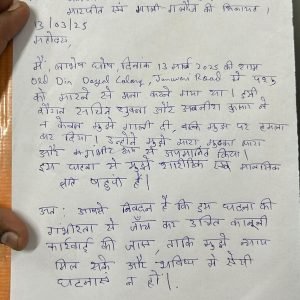 मारपीट एवं गाली गलौज की शिकायत।
13/03/25
महोदय,
मैं, दिनांक 13 मार्च 2025 की शाम
Old Din Dayal Colony, Road में
को मारने से मना करने गया था। इसी
दौरान सचिन शुक्ला और अवनीश कुमार ने
न केवल मुझे गाली दी, बल्कि मुझ पर हमला
कर दिया। उन्होंने मुझे मारा, मारा
और रूप से अपमानित किया।
इस घटना से मुझे शारीरिक एवं मानसिक
पहुंचा है।
अतः आपसे निवेदन है कि इस घटना की
गंभीरता से जाँच कर उचित कानूनी
कार्रवाई की जाए, ताकि मुझे न्याय
मिल सके और भविष्य में ऐसी
घटनाएं न हों।